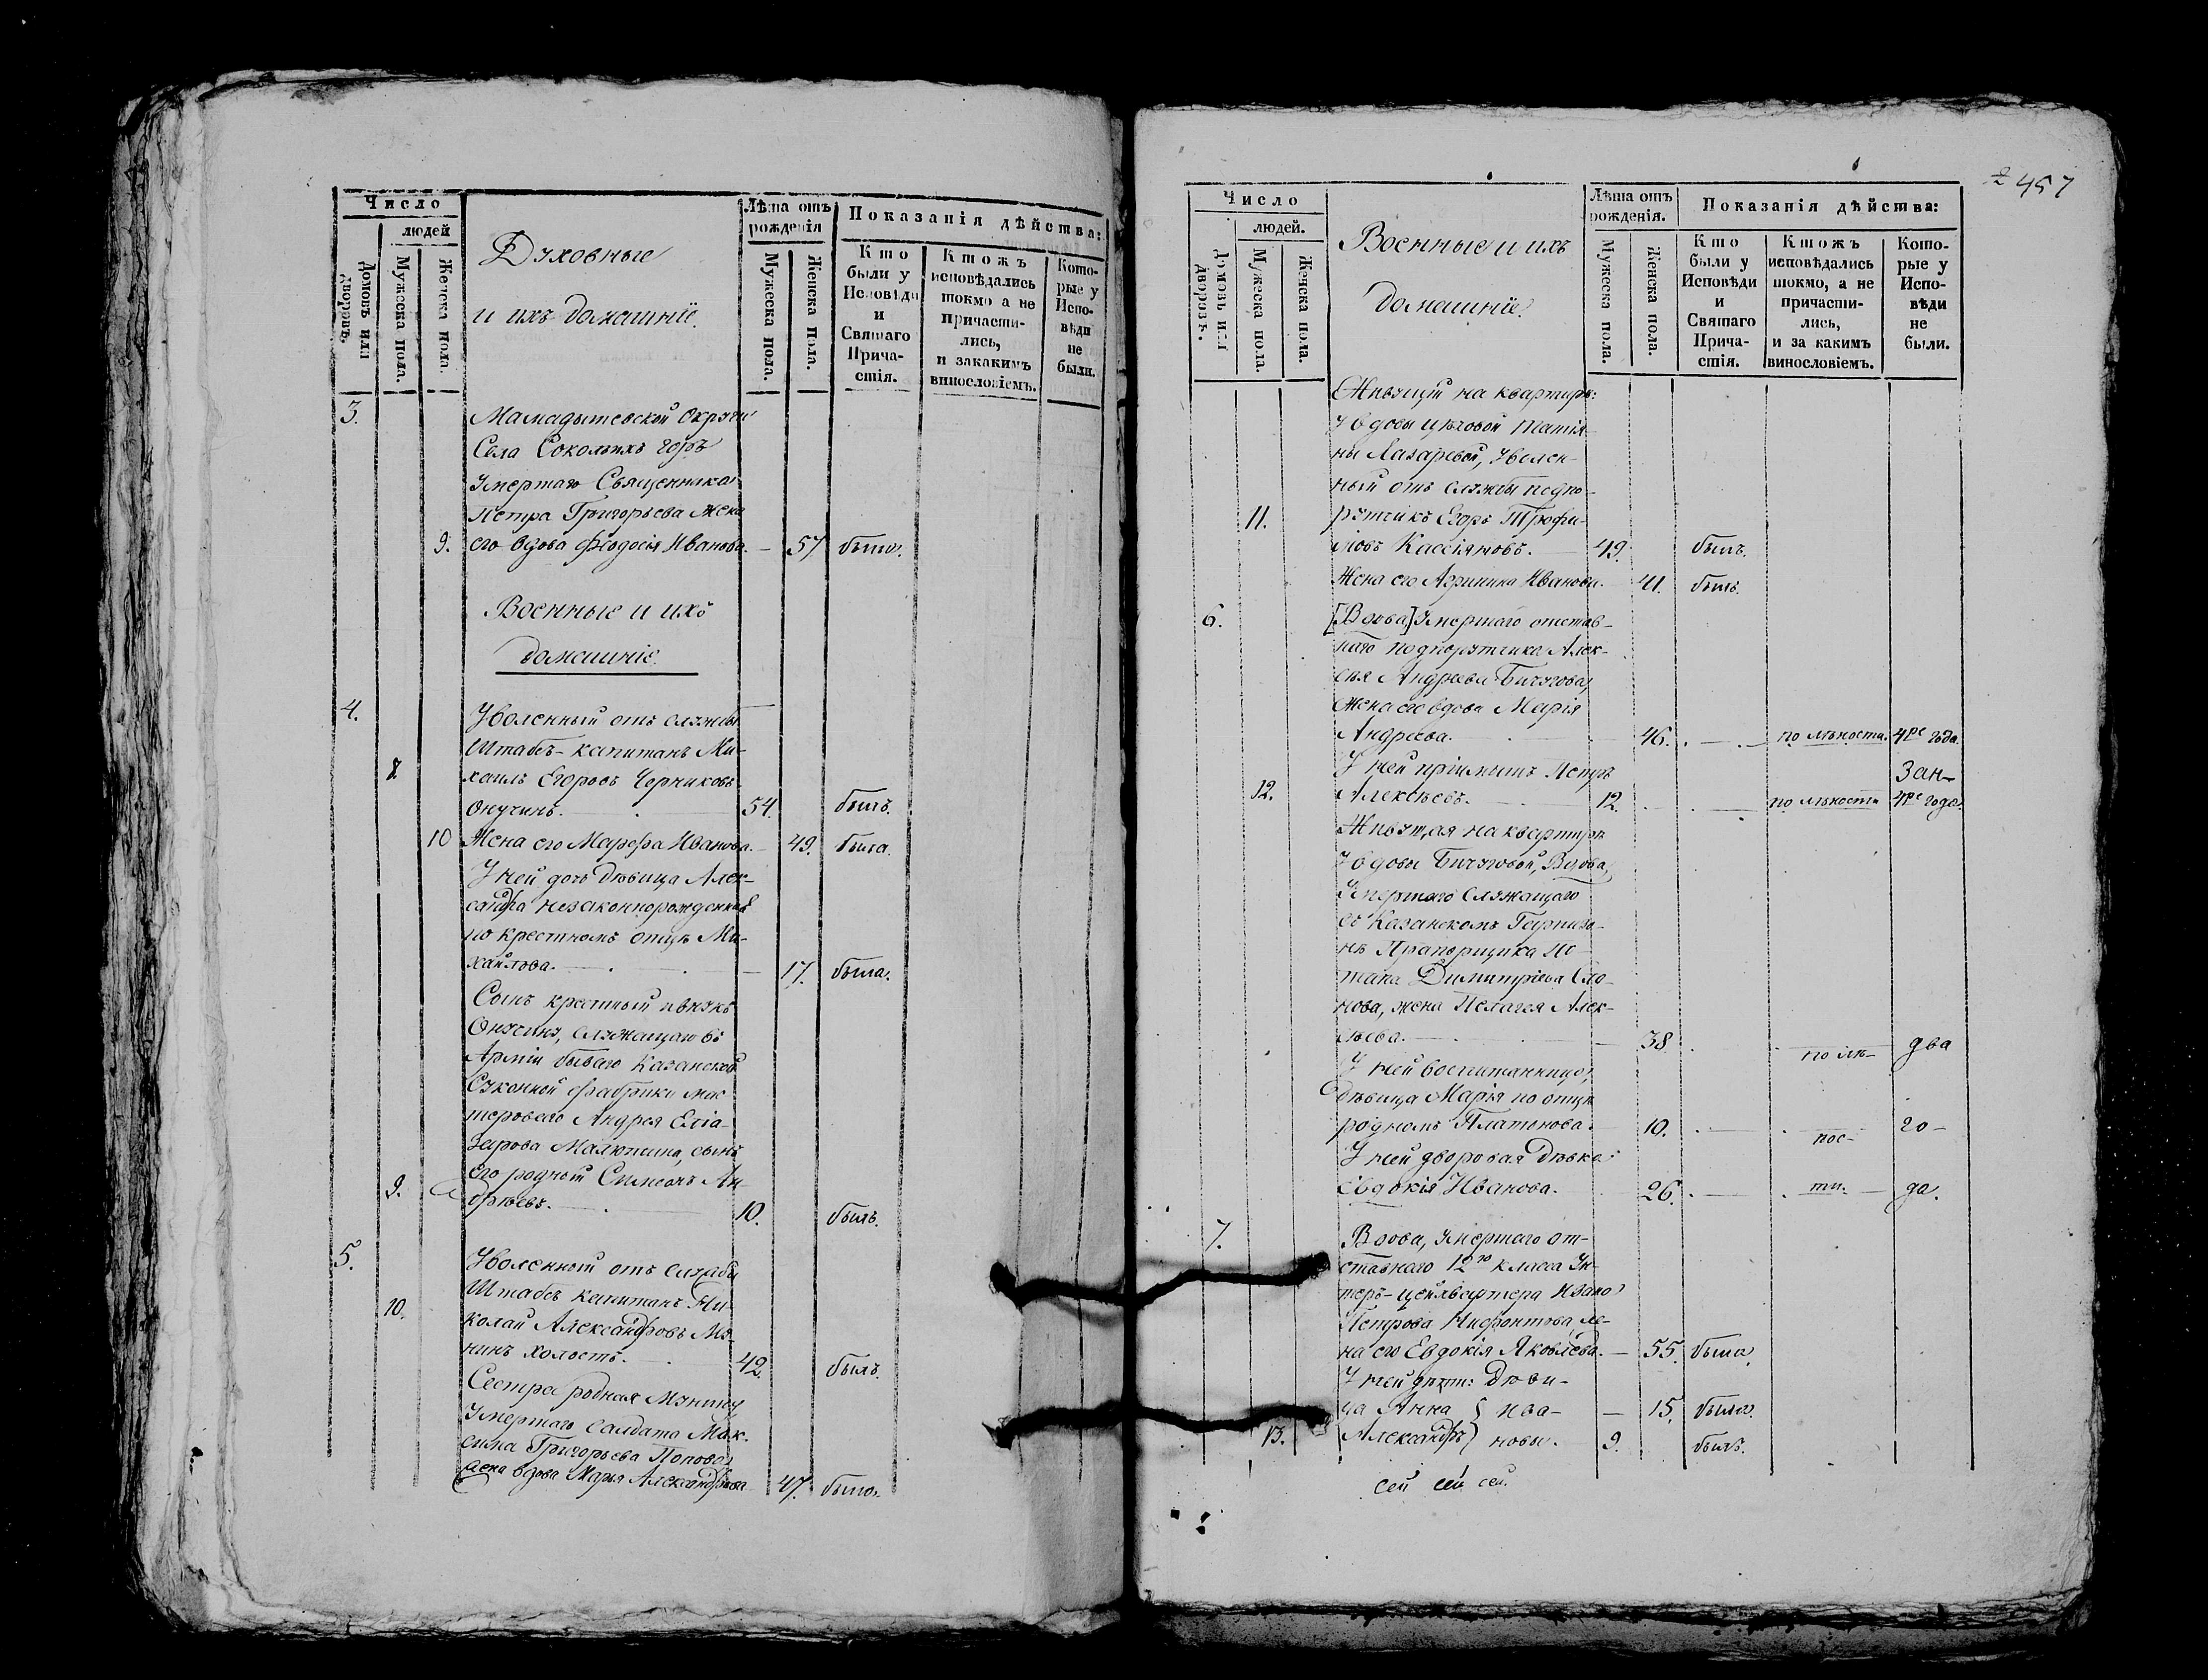 Число
людей
Домовъ или дворовъ.
Мужеска пола.
Женска пола.
Духовные
и ихъ домашніе.
Лѣта отъ рожденія
Мужеска пола.
Женска пола.
Показанія дѣйства:
Кто были у Исповѣди и Святаго Прича-стія.
Ктожъ исповѣдались токмо а не причасти-лись, и закакимъ винословіемъ.
Кото-рые у Испо-вѣди не были.
3. Мамадышевской округи
Села Сокольихъ горъ
Умершаго Священника
Петра Григорьева жена
9. его вдова Феодосія Иванова. — 57 была.
Военные и ихъ
домашніе.
4. Уволенный отъ службы
Штабсъ-капитанъ Ми-
8. хаилъ Егоровъ Черниковъ
Онучинъ. 54. былъ.
10 Жена его Марфа Иванова. — 49. была.
У ней дочь дѣвица Алек-
сандра незаконнорожденная
по крестномъ отцѣ Ми-
хайлова. — 17. была.
Сынъ крестный
Онучину, служащаго въ
Арміи бываго Казанской
Суконной фабрики мас-
тероваго Андрея Еліа-
зарова Малютина, сынъ
его родной Симеонъ Ан-
9. дреевъ. 10. былъ.
5. Уволенный отъ службы
Штабсъ капитанъ Ни-
10. колай Александровъ Му-
нинъ холостъ. 42. былъ.
Сестра родная Мунину
Умершаго Салдата Мак-
сима Григорьева Попова
жена вдова Марья Александрова 47. была.
457
Число
людей.
Домовъ или дворовъ.
Мужеска пола.
Женска пола.
Военные и ихъ
домашніе.
Лѣта отъ рожденія.
Мужеска пола.
Женска пола.
Показанія дѣйства:
Кто были у Исповѣди и Святаго Прича-стія.
Ктожъ исповѣдались токмо, а не причасти-лись, и за какимъ винословіемъ.
Кото-рые у Испо-вѣди не были.
Живущій на квартирѣ:
У вдовы цѣховой Татія-
ны Лазаревой, Уволен-
ный отъ службы подпо-
11. рутчикъ Егоръ Трофи-
мовъ Кассіяновъ. 49. былъ.
Жена его Агрипина Иванова. 41. была.
6. [Вдова] Умершаго отстав-
наго подпорутчика Алек-
сѣя Андреева Бичугова,
жена его вдова Марія
Андреева. 46. по лѣности. 4ре года.
У ней пріимышъ Петръ Зан-
12. Алексѣевъ. 12. по лѣности 4ре года.
Живущая на квартирѣ
У вдовы Бичуговой, Вдова,
Умершаго Служащаго
въ Казанскомъ Гарнизо-
нѣ Прапорщика По-
тапа Димитріева
нова, жена Пелагея Алек-
сѣева. — 38. по лѣ- два
У ней воспитанница,
Дѣвица Марія по отцѣ
родномъ Платонова. 10. нос- го-
У ней дворовая дѣвка:
Евдокія Иванова. 26. ти. да.
7. Вдова, умершаго от-
ставнаго 12го класса Ун-
теръ-цейхвартера Ивана
Петрова Нифонтова, же-
на его Евдокія Яковлева. — 55. была.
У ней дѣти: Дѣви-
ца Анна } Ива- — 15. была.
13. Александръ } новы. 9. былъ.
сей сей сей